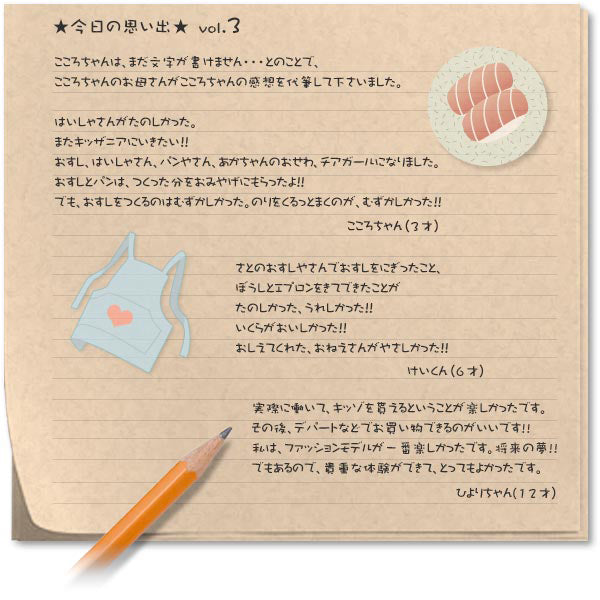 ★今日の思い出★ vol.3
こころちゃんは、まだ文字が書けません・・・とのことで、
こころちゃんのお母さんがこころちゃんの感想を代筆して下さいました。
はいしゃさんがたのしかった。
またキッザニアにいきたい!!
おすし、はいしゃさん、パンやさん、あかちゃんのおせわ、チアガールになりました。
おすしとパンは、つくった分をおみやげにもらったよ!!
でも、おすしをつくるのはむずかしかった。のりをくるっとまくのが、むずかしかった!!
こころちゃん(3才)
さとのおすしやさんでおすしをにぎったこと、
ぼうしとエプロンをきてできたことが
たのしかった、うれしかった!!
いくらがおいしかった!!
おしえてくれた、おねえさんがやさしかった!!
けいくん(6才)
実際に働いて、キッゾを貰えるということが楽しかったです。
その後、デパートなどでお買い物できるのがいいです!!
私は、ファッションモデルが一番楽しかったです。将来の夢!!
でもあるので、貴重な体験ができて、とってもよかったです。
ひよりちゃん(12才)